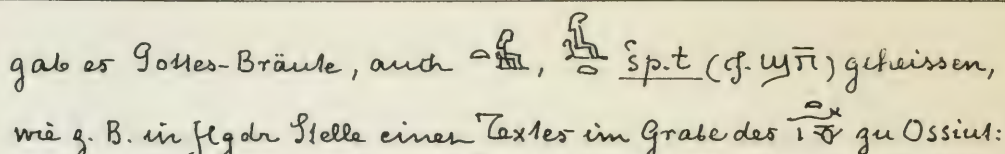 gab es Gottes-Bräute, auch , šp.t (cf. ϣⲡ̄) geheissen,
wie z. B. in flgdr Stelle eines Textes im Grabe des zu Ossiut: